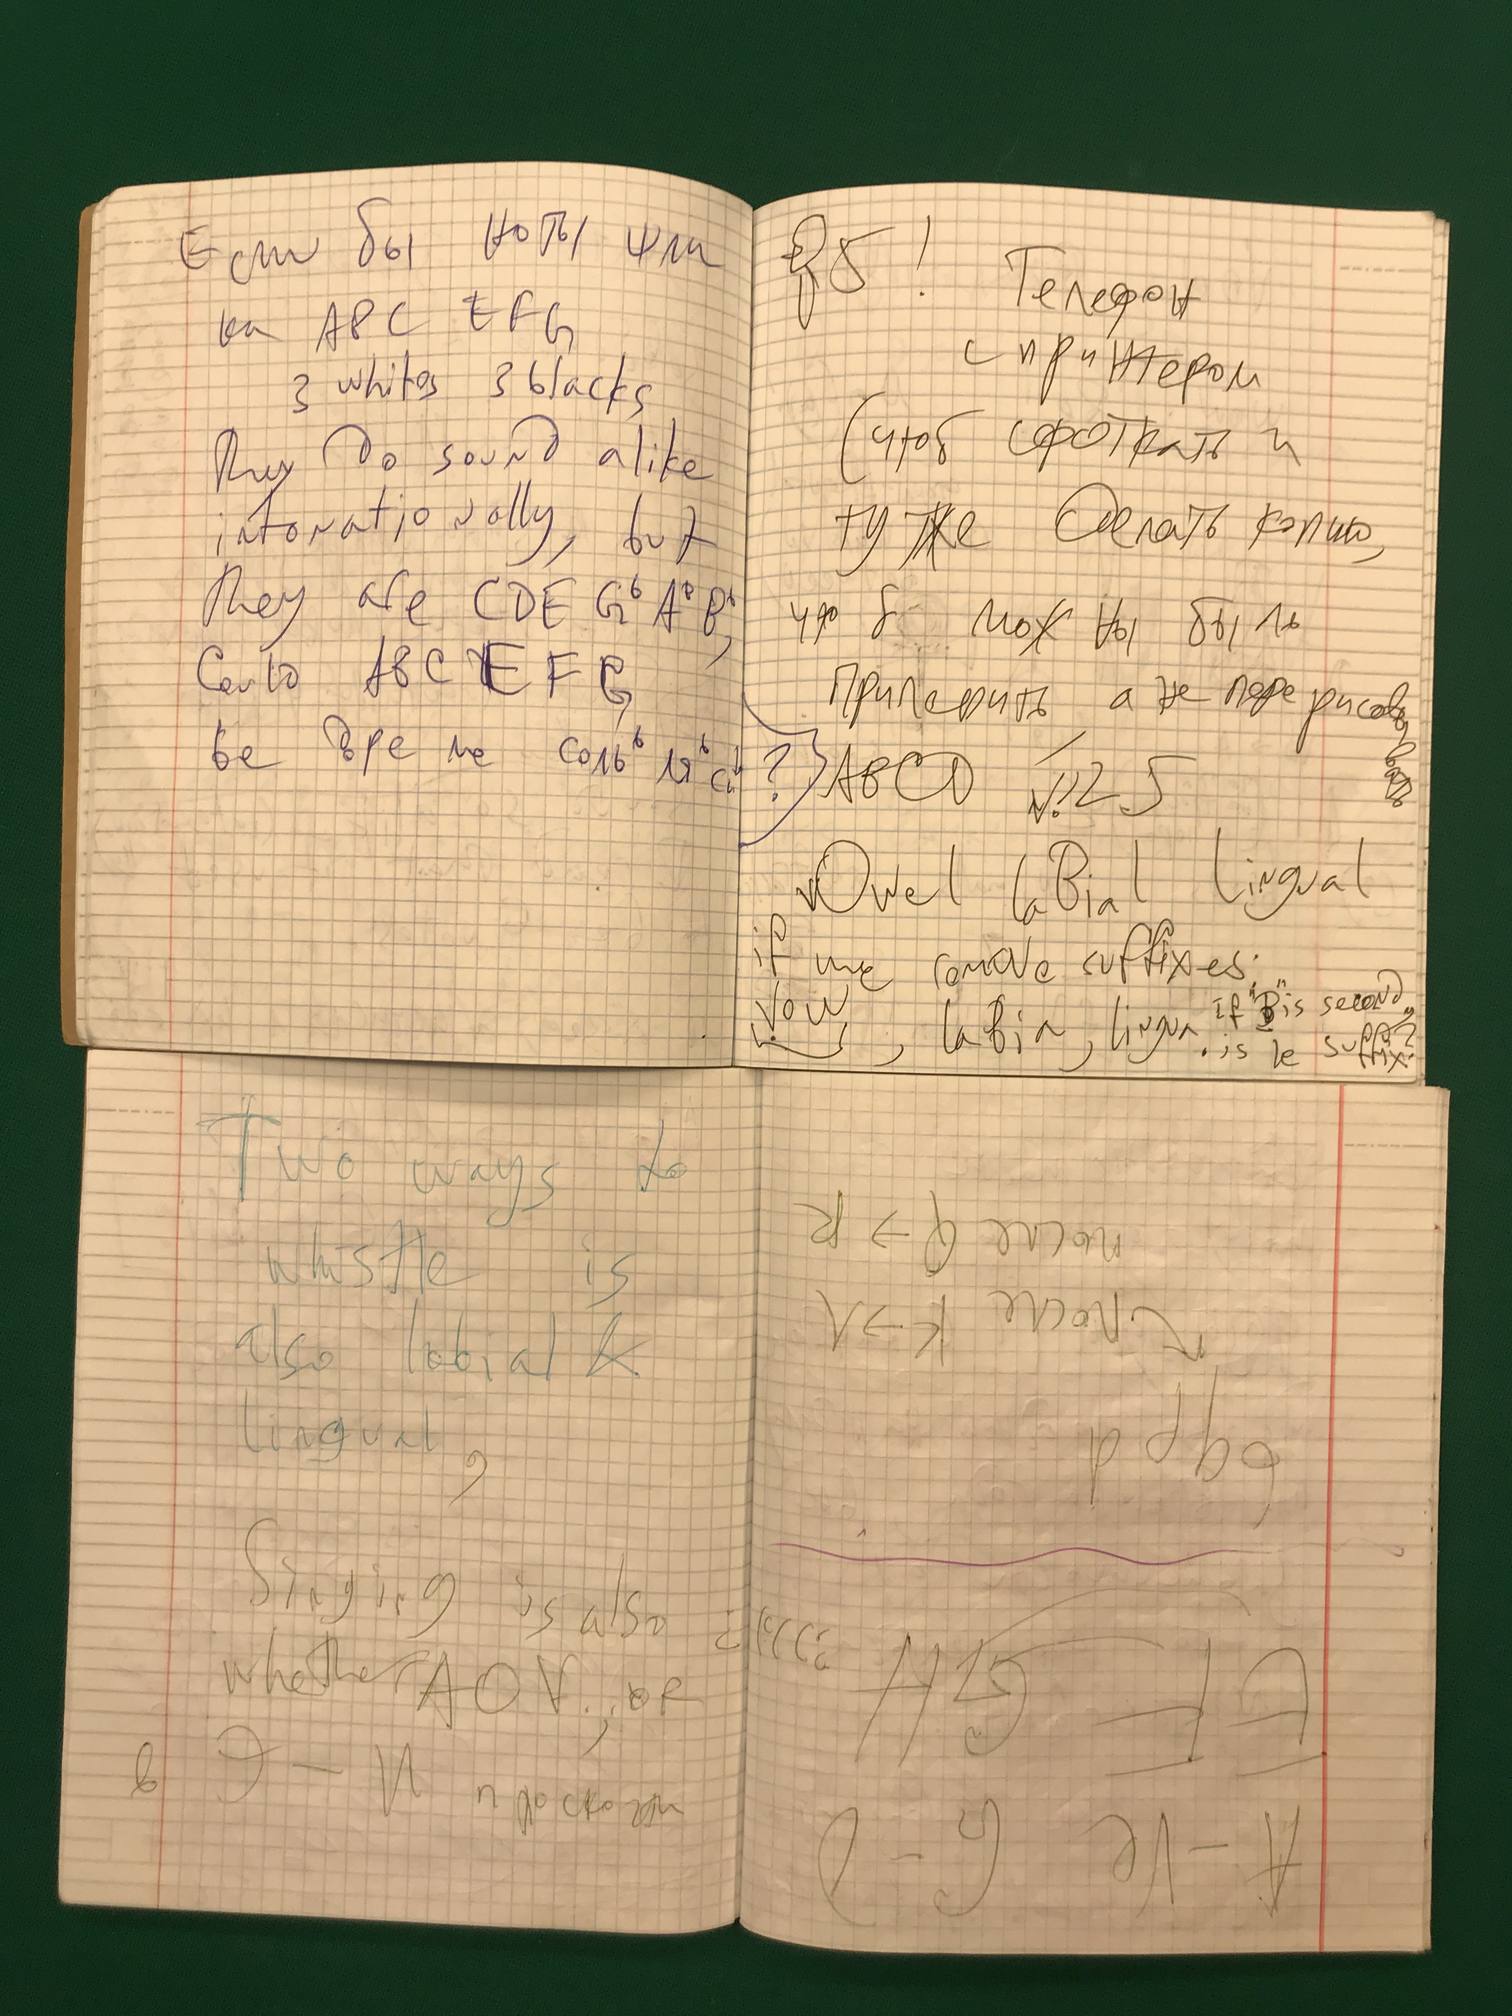 Если бы ноты шли
как ABC EFG
3 whites 3 blacks
They Do sound alike
intonationally, but
they are CDE G♭ A♭ B♭,
ABC EFG
ре ми соль♭ ля♭ си♭ ?
85! Телефон
с принтером
(чтоб сфоткать и
тут же сделать копию,
чтоб можны было
примерить а не перерисов
ABCD 25
vOwel laBial Lingual
if we remove suffixes:
vow, labia, lingua. if "B" is second,
is le suffix?
Two ways to
whistle is
also labial &
lingual,
Singing is also
whether AOV, or
Э – И – Е проскочи
в
после Q → R
после K → Λ
b q p d
EF GH
A – Ve G – D